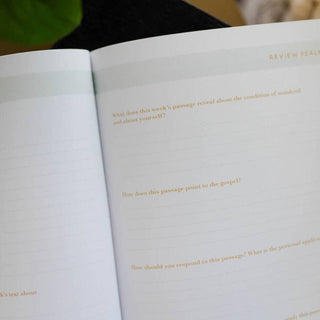 REVIEW PSALM
What does this week's passage reveal about the condition of mankind
and about yourself?
How does this passage point to the gospel?
How should you respond to this passage? What is the personal applic
k's text about